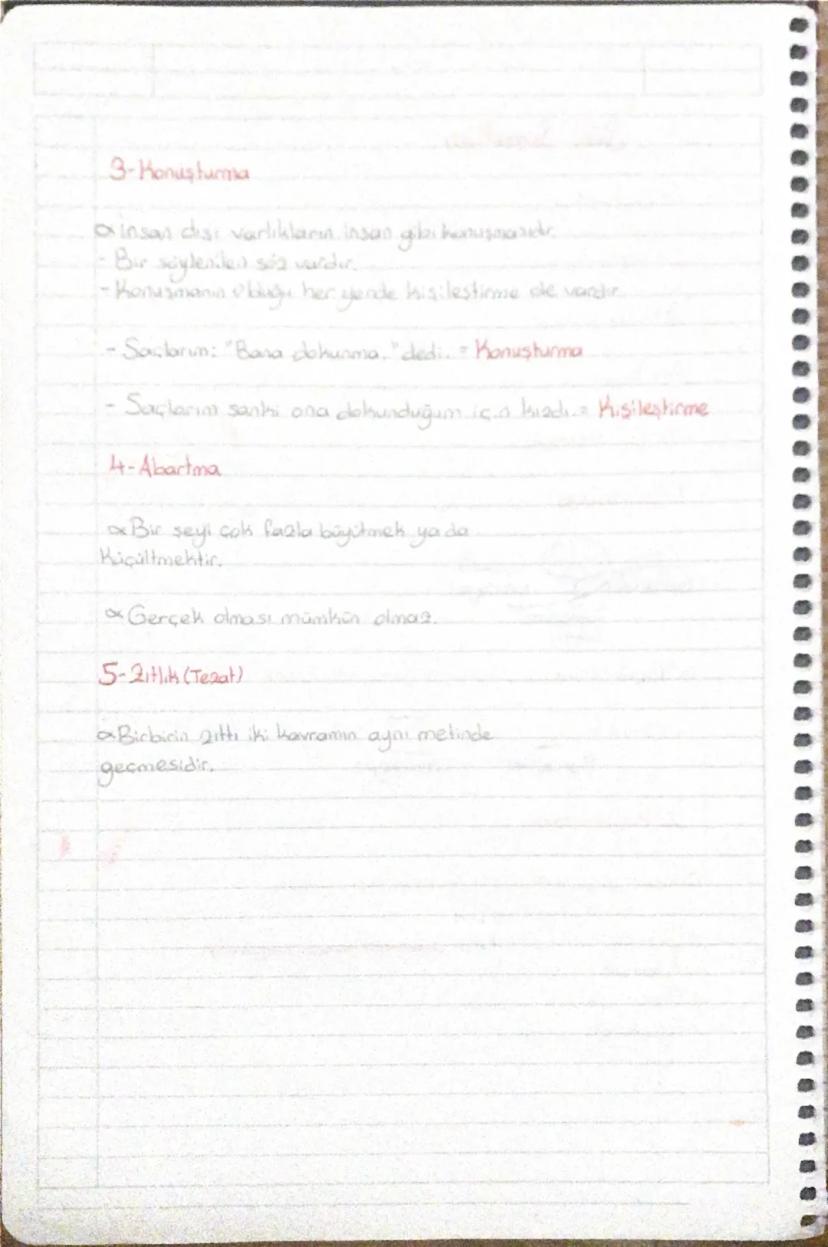 3-Konuşturma
∝ İnsan dışı varlıkların insan gibi konuşmasıdır.
- Bir söylenilen söz vardır.
- Konuşmanın olduğu her yerde kişileştirme de vardır.
- Saçlarım: "Bana dokunma." dedi. = Konuşturma
- Saçlarım sanki ona dokunduğum için kızdı. = Kişileştirme
4-Abartma
∝ Bir şeyi çok fazla büyütmek ya da
küçültmektir.
∝ Gerçek olması mümkün olmaz.
5-Zıtlık (Tezat)
∝ Birbirin zıttı iki kavramın aynı metinde
geçmesidir.